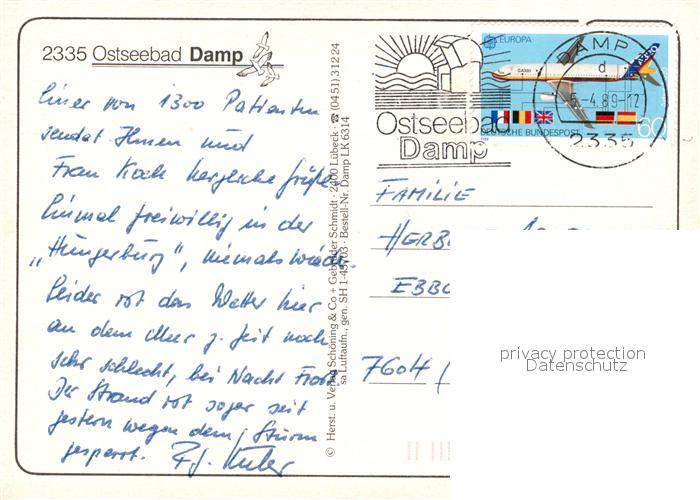 2335 Ostseebad Damp
Einer von 1300 Patienten
sendet Ihnen und
Frau Koch herzliche Grüße.
Einmal freiwillig in der
„Hungerburg", niemals wieder.
Leider ist das Wetter hier
an dem Meer z. Zeit noch
sehr schlecht, bei Nacht Frost
Der Strand ist sogar seit
gestern wegen dem Sturm
gesperrt.
© Herst. u. Verlag Schöning & Co + Gebrüder Schmidt · 2400 Lübeck · ☎ (04 51) 3 12 24
sa Luftaufn., gen. SH 1-45/03 · Bestell-Nr. Damp LK 6314
Ostseebad
Damp
EUROPA
DEUTSCHE BUNDESPOST
60
DAMP
d
5.-4.89-12
2335
FAMILIE
HERB
EBB
7604
privacy protection
Datenschutz